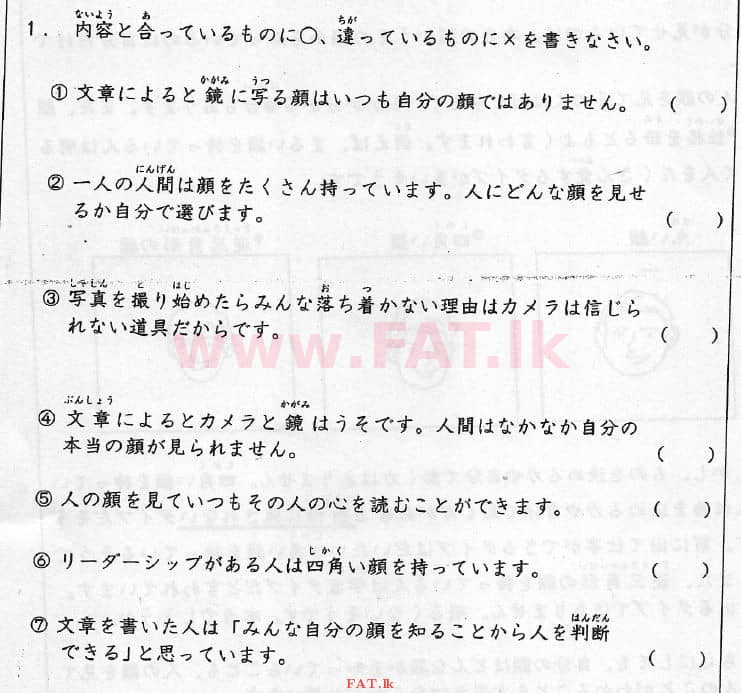 1. 内容と合っているものに○、違っているものに×を書きなさい。
① 文章によると鏡に写る顔はいつも自分の顔ではありません。 (　)
② 一人の人間は顔をたくさん持っています。人にどんな顔を見せ
るか自分で選びます。 (　)
③ 写真を撮り始めたらみんな落ち着かない理由はカメラは信じら
れない道具だからです。 (　)
www.FAT.lk
④ 文章によるとカメラと鏡はうそです。人間はなかなか自分の
本当の顔が見られません。 (　)
⑤ 人の顔を見ていつもその人の心を読むことができます。 (　)
⑥ リーダーシップがある人は四角い顔を持っています。 (　)
⑦ 文章を書いた人は「みんな自分の顔を知ることから人を判断
できる」と思っています。 (　)
FAT.lk